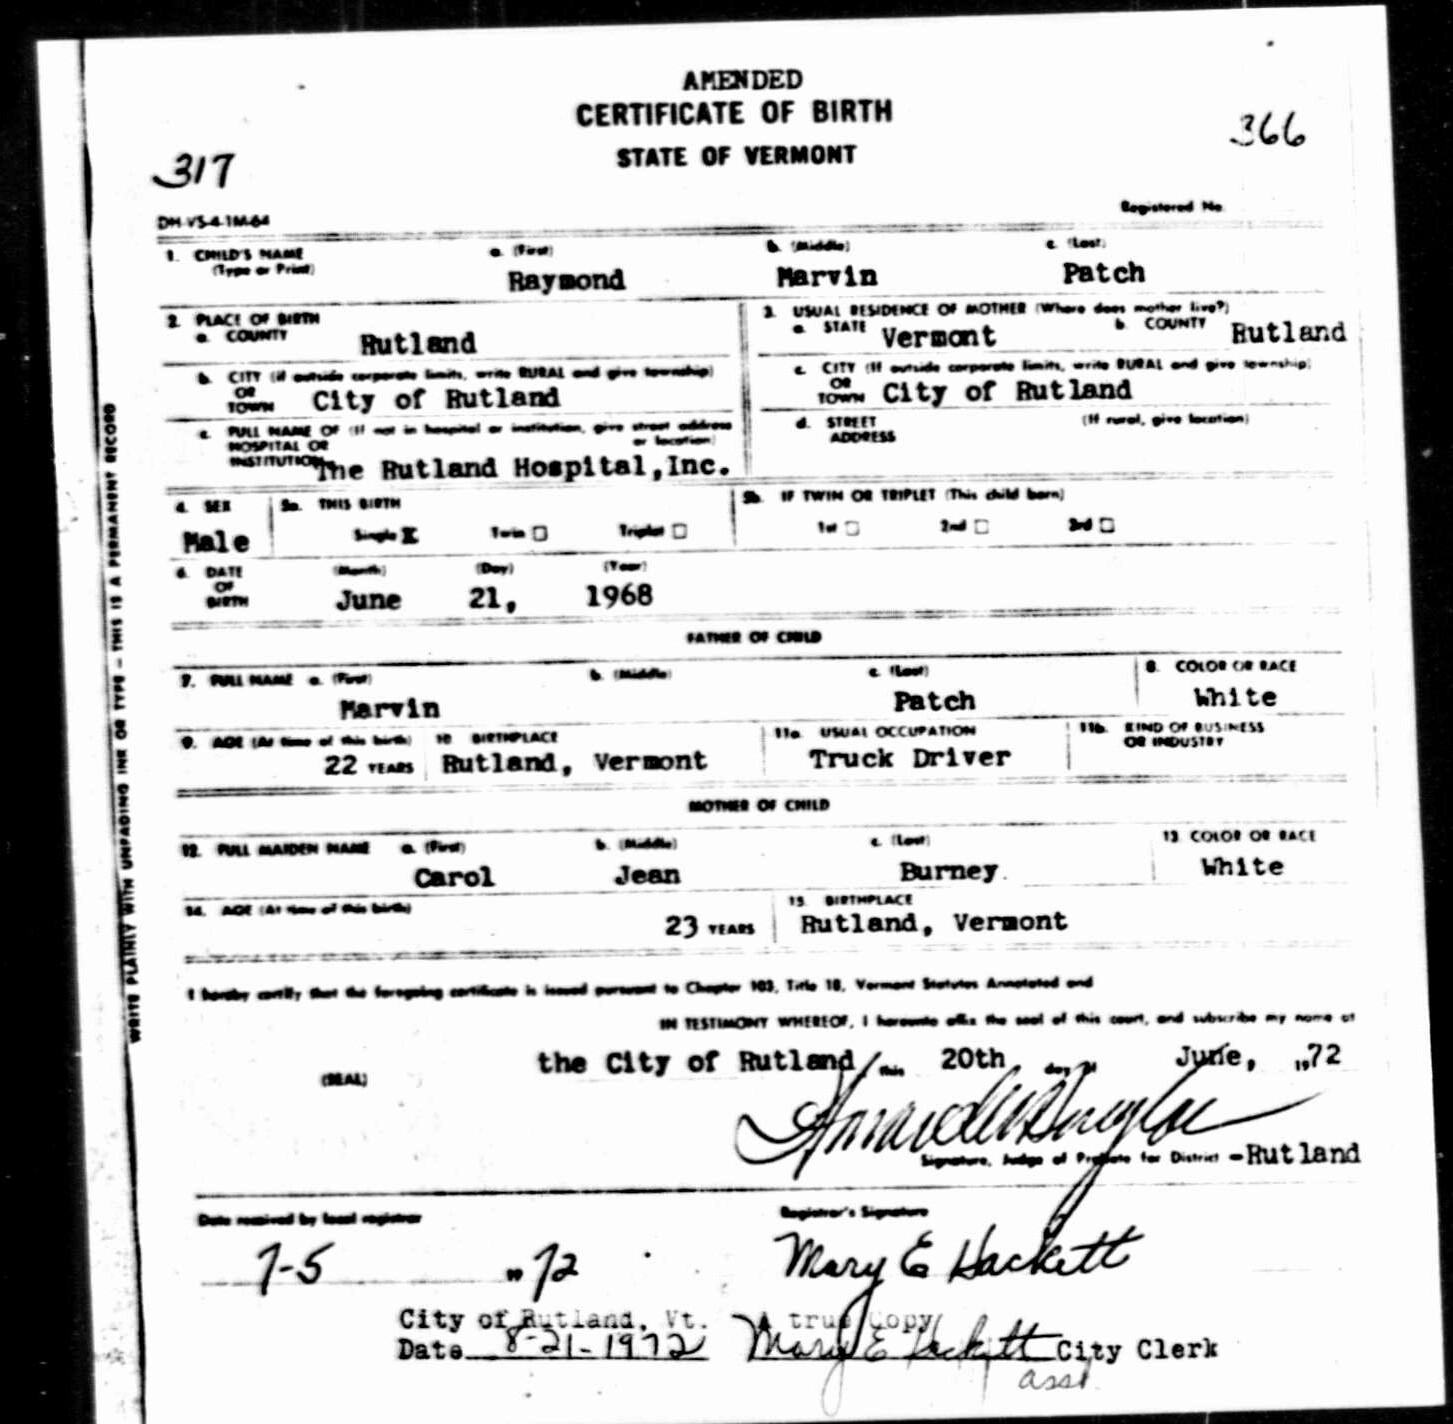 AMENDED
CERTIFICATE OF BIRTH
STATE OF VERMONT
317
366
DH-VS-4-1M-64
Registered No.
1. CHILD'S NAME (Type or Print) a. (First) b. (Middle) c. (Last)
Raymond Marvin Patch
2. PLACE OF BIRTH
a. COUNTY Rutland
3. USUAL RESIDENCE OF MOTHER (Where does mother live?)
a. STATE Vermont b. COUNTY Rutland
b. CITY (if outside corporate limits, write RURAL and give township)
OR TOWN City of Rutland
c. CITY (If outside corporate limits, write RURAL and give township)
OR TOWN City of Rutland
c. FULL NAME OF (If not in hospital or institution, give street address or location)
HOSPITAL OR INSTITUTION The Rutland Hospital,Inc.
d. STREET ADDRESS (If rural, give location)
4. SEX
Male
5a. THIS BIRTH
Single X Twin Triplet
5b. IF TWIN OR TRIPLET (This child born)
1st 2nd 3rd
6. DATE OF BIRTH (Month) (Day) (Year)
June 21, 1968
FATHER OF CHILD
7. FULL NAME a. (First) b. (Middle) c. (Last)
Marvin Patch
8. COLOR OR RACE
White
9. AGE (At time of this birth)
22 YEARS
10. BIRTHPLACE
Rutland, Vermont
11a. USUAL OCCUPATION
Truck Driver
11b. KIND OF BUSINESS OR INDUSTRY
MOTHER OF CHILD
12. FULL MAIDEN NAME a. (First) b. (Middle) c. (Last)
Carol Jean Burney
13. COLOR OR RACE
White
14. AGE (At time of this birth)
23 YEARS
15. BIRTHPLACE
Rutland, Vermont
I hereby certify that the foregoing certificate is issued pursuant to Chapter 103, Title 18, Vermont Statutes Annotated and
IN TESTIMONY WHEREOF, I hereunto affix the seal of this court, and subscribe my name at
(SEAL)
the City of Rutland, this 20th day of June, 19 72
Signature, Judge of Probate for District - Rutland
Date received by local registrar
7-5 19 72
Registrar's Signature
Mary E Hackett
City of Rutland, Vt. A true Copy
Date 8-21-1972 Mary E Hackett City Clerk
asst
WRITE PLAINLY WITH UNFADING INK OR TYPE - THIS IS A PERMANENT RECORD